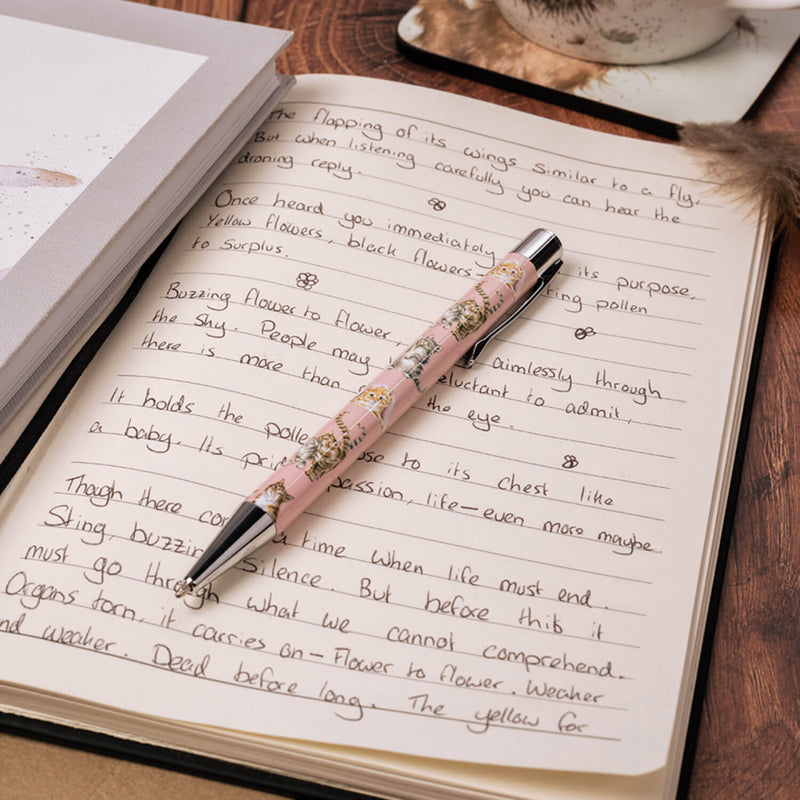 The flapping of its wings similar to a fly,
But when listening carefully you can hear the
droning reply.
Once heard you immediately its purpose,
Yellow flowers, black flowers- ting pollen
to surplus.
Buzzing flower to flower, aimlessly through
the sky. People may reluctant to admit,
there is more than the eye.
It holds the pollen close to its chest like
a baby. Its passion, life-even more maybe.
Though there a time when life must end.
Sting, buzzing silence. But before this it
must go through what we cannot comprehend.
Organs torn, it carries on - Flower to flower. Weaker
nd weaker. Dead before long. The yellow for